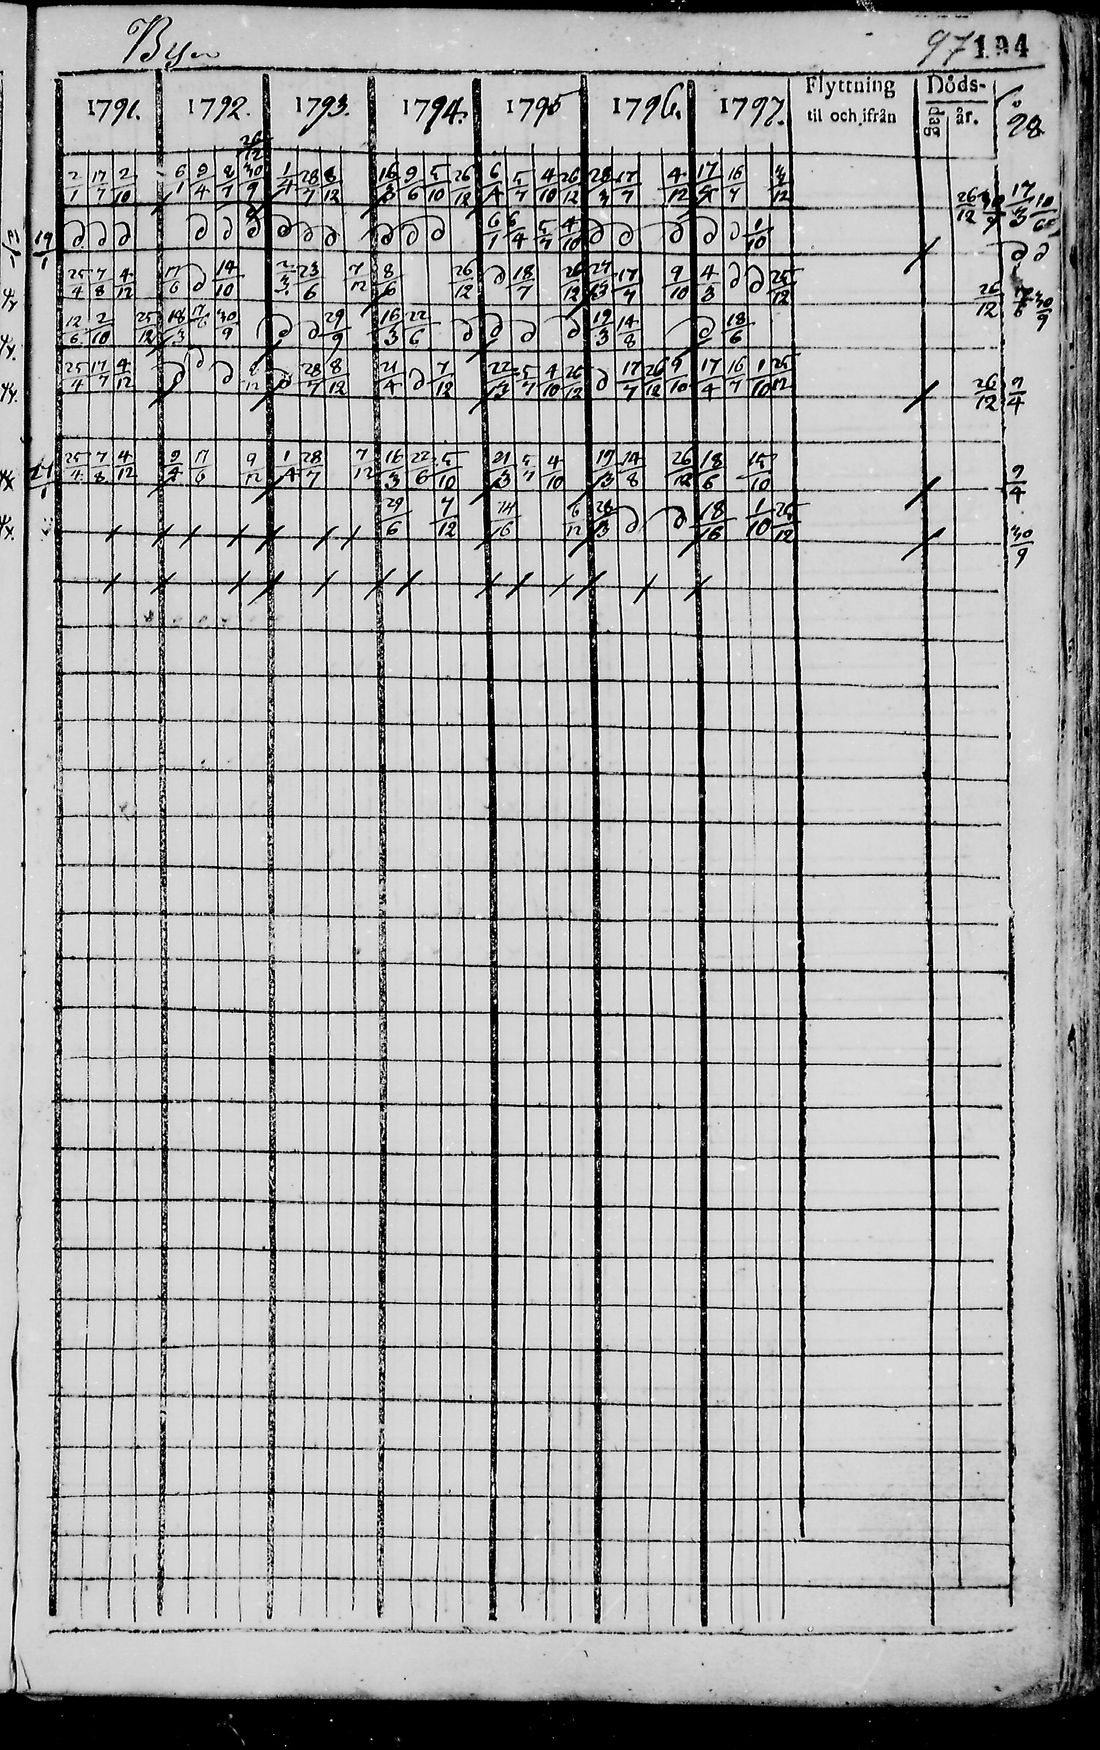 Byn 97 194
1791. 1792. 1793. 1794. 1795 1796. 1797. Flyttning Döds-
til och ifrån dag år. 98
26/12
2/1 17/7 2/10 6/1 9/4 8/7 30/9 1/4 28/7 8/12 16/3 9/6 5/10 26/12 6/1 5/7 4/10 26/12 28/3 17/7 4/12 17/4 16/7 26/12 30/9 17/3
19/1 d d d d d d d d d d d d 6/1 6/4 5/7 4/10 d d d d d 1/10 d d
25/4 7/8 4/12 17/6 d 14/10 23/6 7/12 8/6 26/12 d 18/7 26/12 27/13 17/7 9/10 4/3 d d 25/12 26/12 30/9
12/6 2/10 25/12 18/3 17/6 30/9 d d 29/9 16/3 22/6 d d d d 19/3 14/8 d 18/6
25/4 17/7 4/12 d d d 8/12 d 28/7 8/12 21/4 d 7/12 22/3 5/7 4/10 26/12 d 17/7 26/12 9/10 17/4 16/7 1/10 25/12 26/12 9/4
25/4 7/8 4/12 9/4 17/6 9/12 1/4 28/7 7/12 16/3 22/6 5/10 21/3 5/7 4/10 19/3 14/8 26/12 18/6 15/10 9/4
29/6 7/12 6/12 28/3 d d 18/6 1/10 25/12 30/9